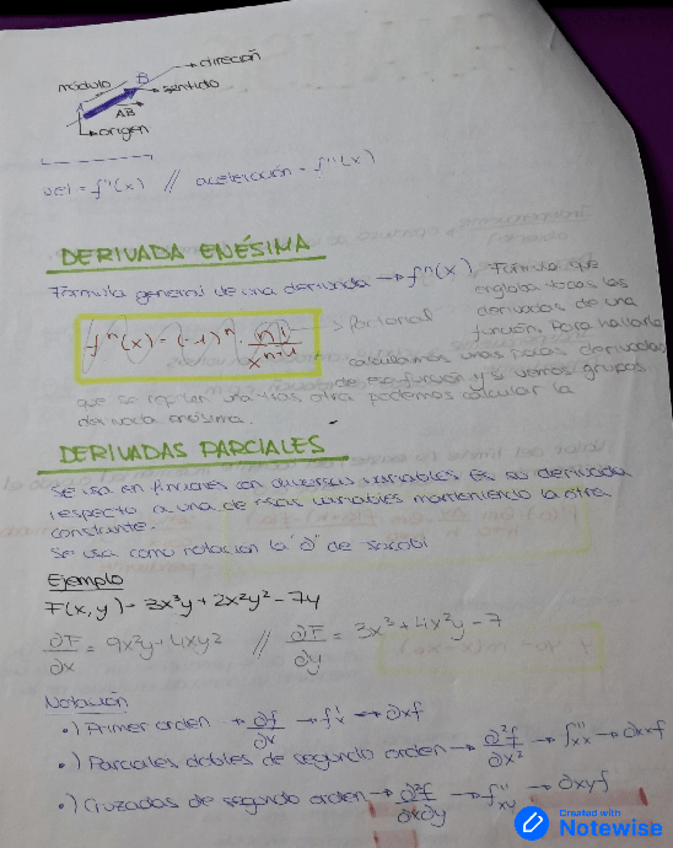 módulo B → dirección
→ sentido
A
AB
→ origen
vel = f'(x) // aceleración = f''(x)
DERIVADA ENÉSIMA
Fórmula general de una derivada → fⁿ(x) Fórmula que
engloba todas las
derivadas de una
función. Para hallarla
fⁿ(x) = (-1)ⁿ · n! / xⁿ⁺¹ → Factorial
calculamos unas pocas derivadas
de esa función y si vemos grupos
que se repiten una tras otra podemos calcular la
derivada enésima.
DERIVADAS PARCIALES
Se usa en funciones con diversas variables Es su derivada
respecto a una de esas variables manteniendo la otra
constante.
Se usa como notación la "∂" de Jacobi
Ejemplo
F(x, y) = 3x³y + 2x²y² - 7y
∂F/∂x = 9x²y + 4xy² // ∂F/∂y = 3x³ + 4x²y - 7
Notación
·) Primer orden → ∂f/∂x → f'x → ∂xf
·) Parciales dobles de segundo orden → ∂²f/∂x² → f''xx → ∂xxf
·) Cruzadas de segundo orden → ∂²f/∂x∂y → f''xy → ∂xyf
Created with
Notewise